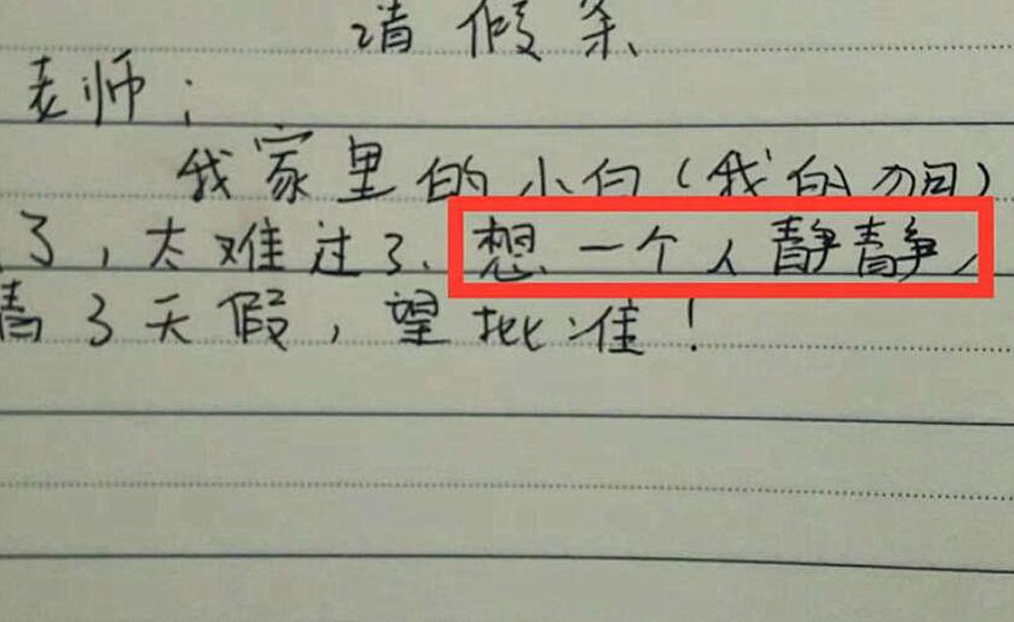 请假条
老师：
我家里的小白（我的狗）
了，太难过了、想一个人静静，
请3天假，望批准！